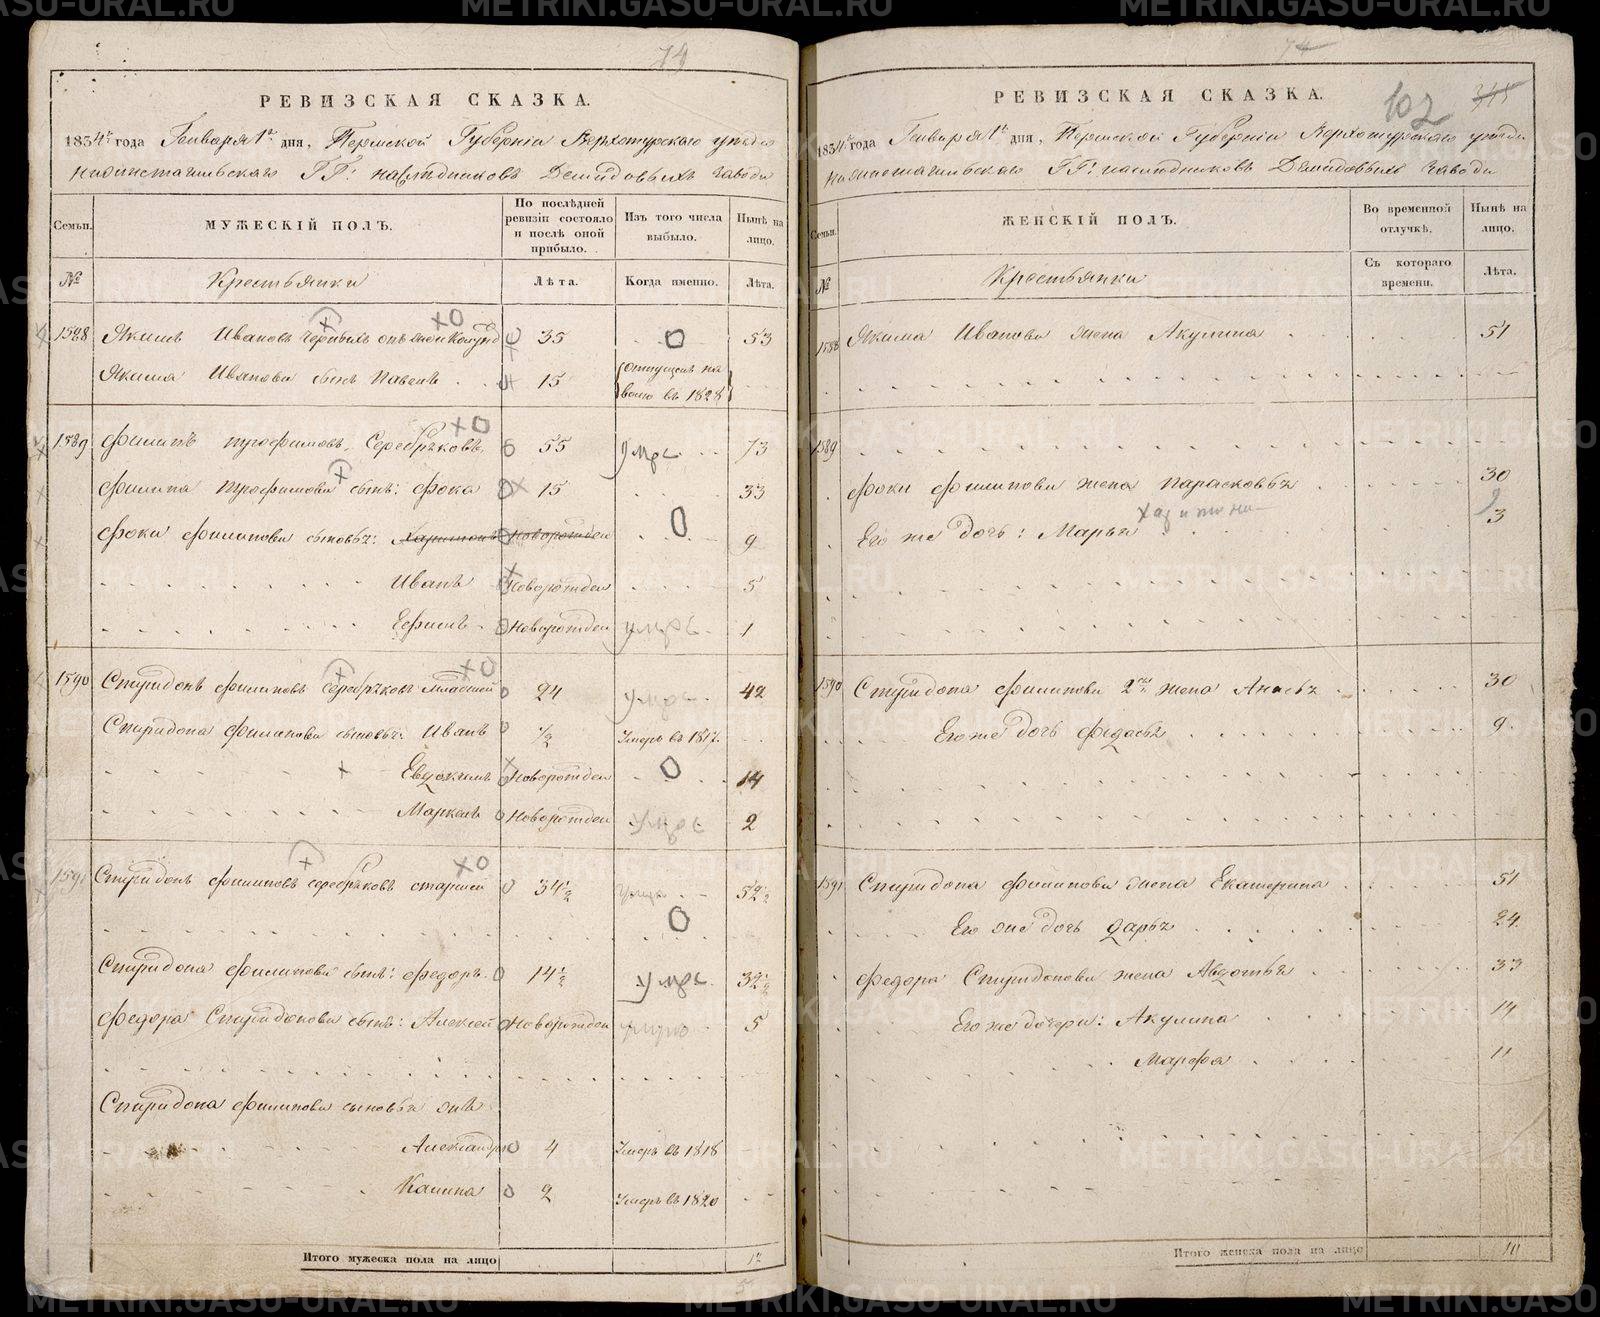 74
РЕВИЗСКАЯ СКАЗКА.
1834 года Генваря 1 дня, Пермской Губернiи Верхотурскаго уезда
Нижнетагильскаго ГГ: наследниковъ Демидовыхъ завода
Семьи.
МУЖЕСКIЙ ПОЛЪ.
По послѣдней ревизiи состояло и послѣ оной прибыло.
Изъ того числа выбыло.
Нынѣ на лицо.
№
Крестьянки
Лѣта.
Когда именно.
Лѣта.
1588 Якимъ Ивановъ 35 53
Якима Иванова сынъ Павелъ 15 отпущенъ на
волю въ 1828
1589 Филипъ Трофимовъ Серебряковъ 55 умре 73
Филипа Трофимова сынъ: Фока 15 33
Фоки Филипова сыновья: Харитонъ Новорожден 9
Иванъ Новорожден 5
Ефимъ Новорожден умре 1
1590 Спиридонъ Филиповъ Серебряковъ младшей 24 умре 42
Спиридона Филипова сыновья: Иванъ 1/2 Умеръ въ 1817.
Евдокимъ Новорожден 14
Маркелъ Новорожден умре 2
1591 Спиридонъ Филиповъ Серебряковъ старшей 34 1/2 52 1/2
Спиридона Филипова сынъ: Федоръ 14 1/2 умре 32 1/2
Федора Спиридонова сынъ: Алексей Новорожден 5
Спиридона Филипова сыновья же
Александръ 4 Умеръ въ 1818
Калина 2 Умеръ въ 1820
Итого мужеска пола на лицо 12
5
74
102
345
РЕВИЗСКАЯ СКАЗКА.
1834 года Генваря 1 дня, Пермской Губернiи Верхотурскаго уезда
Нижнетагильскаго ГГ: наследниковъ Демидовыхъ завода
Семьи.
ЖЕНСКIЙ ПОЛЪ.
Во временной отлучкѣ.
Нынѣ на лицо.
№
Крестьянки
Съ котораго времени.
Лѣта.
1588 Якима Иванова жена Акулина 51
1589
Фоки Филипова жена Парасковья 30
Его же дочь: Марья 3
1590 Спиридона Филипова 2я жена Анисья 30
Его же дочь Федосья 9
1591 Спиридона Филипова жена Екатерина 51
Его же дочь Дарья 24
Федора Спиридонова жена Авдотья 33
Его же дочери: Акулина 14
Марфа 11
Итого женска пола на лицо 10
METRIKI.GASO-URAL.RU